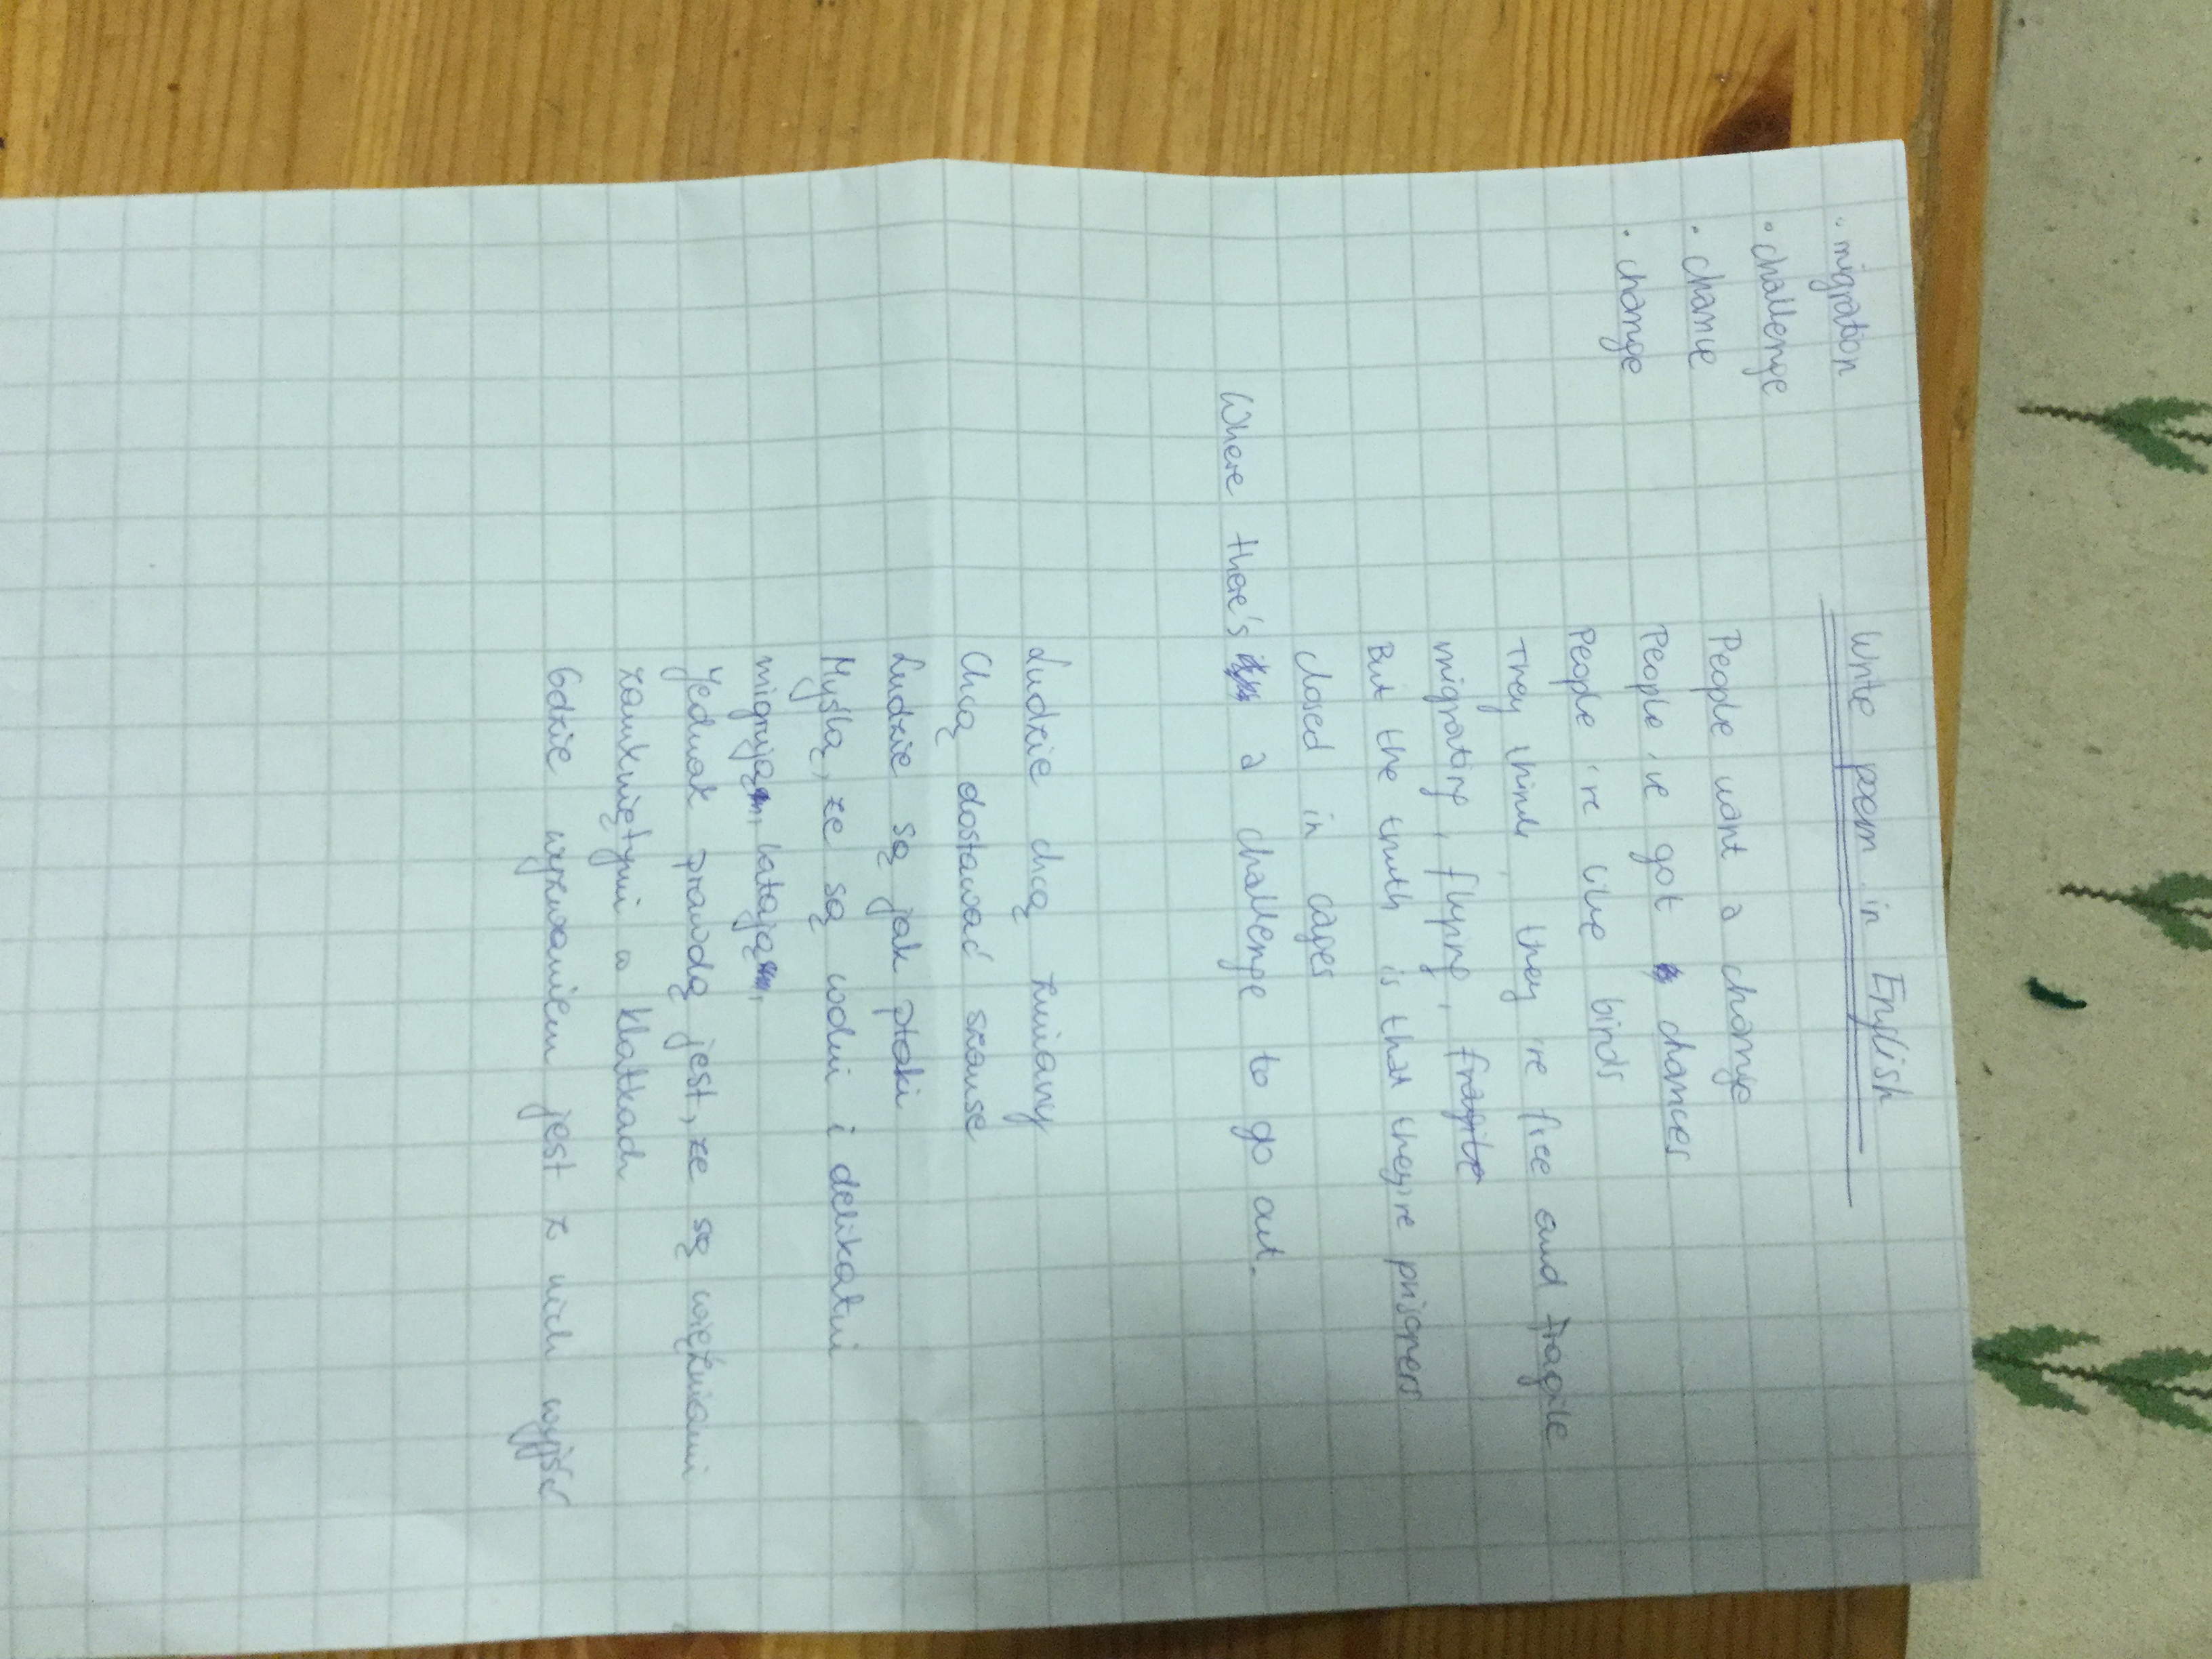 Write poem in English
· migration
· challenge
· chance
· change
People want a change
People 've got chances
People 're like birds
They think they 're free and fragile
migrating, flying, fragile
But the truth is that they're prisoners
closed in cages
Where there's a challenge to go out.
Ludzie chcą zmiany
Chcą dostawać szanse
Ludzie są jak ptaki
Myślą, że są wolni i delikatni
migrują, latają,
Jednak prawdą jest, że są więźniami
zamkniętymi w klatkach
Gdzie wyzwaniem jest z nich wyjść